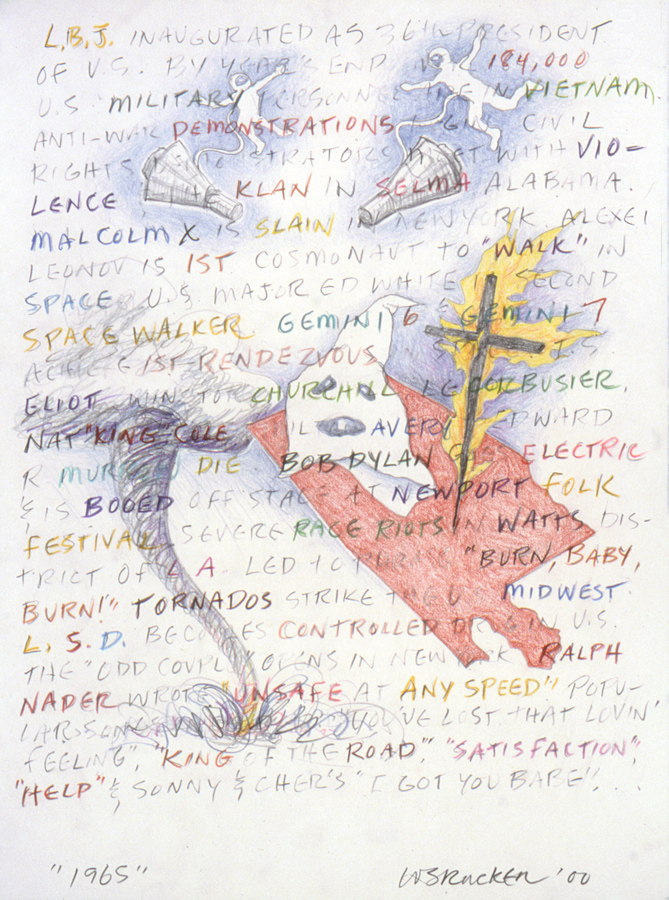 L.B.J. INAUGURATED AS 36TH PRESIDENT
OF U.S. BY YEAR'S END 184,000
U.S. MILITARY PERSONNEL ARE IN VIETNAM.
ANTI-WAR DEMONSTRATIONS CIVIL
RIGHTS MEET WITH VIO-
LENCE & THE KLAN IN SELMA ALABAMA.
MALCOLM X IS SLAIN IN NEW YORK. ALEXEI
LEONOV IS 1ST COSMONAUT TO "WALK" IN
SPACE. U.S. MAJOR ED WHITE SECOND
SPACE WALKER GEMINI 6 & GEMINI 7
ACHIEVE 1ST RENDEZVOUS IN SPACE. T.S.
ELIOT, WINSTON CHURCHILL, LE CORBUSIER,
NAT "KING" COLE AVERY, EDWARD
R MURROW DIE. BOB DYLAN GOES ELECTRIC
& IS BOOED OFF STAGE AT NEWPORT FOLK
FESTIVAL. SEVERE RACE RIOTS IN WATTS DIS-
TRICT OF L.A. LED TO PHRASE "BURN, BABY,
BURN!" TORNADOS STRIKE THE U.S. MIDWEST.
L.S.D. BECOMES CONTROLLED DRUG IN U.S.
THE "ODD COUPLE" OPENS IN NEW YORK. RALPH
NADER WROTE "UNSAFE AT ANY SPEED". POPU-
LAR SONGS "YOU'VE LOST THAT LOVIN'
FEELING", "KING OF THE ROAD", "SATISFACTION",
"HELP" & SONNY & CHER'S "I GOT YOU BABE"...
"1965" WSRUCKER '00